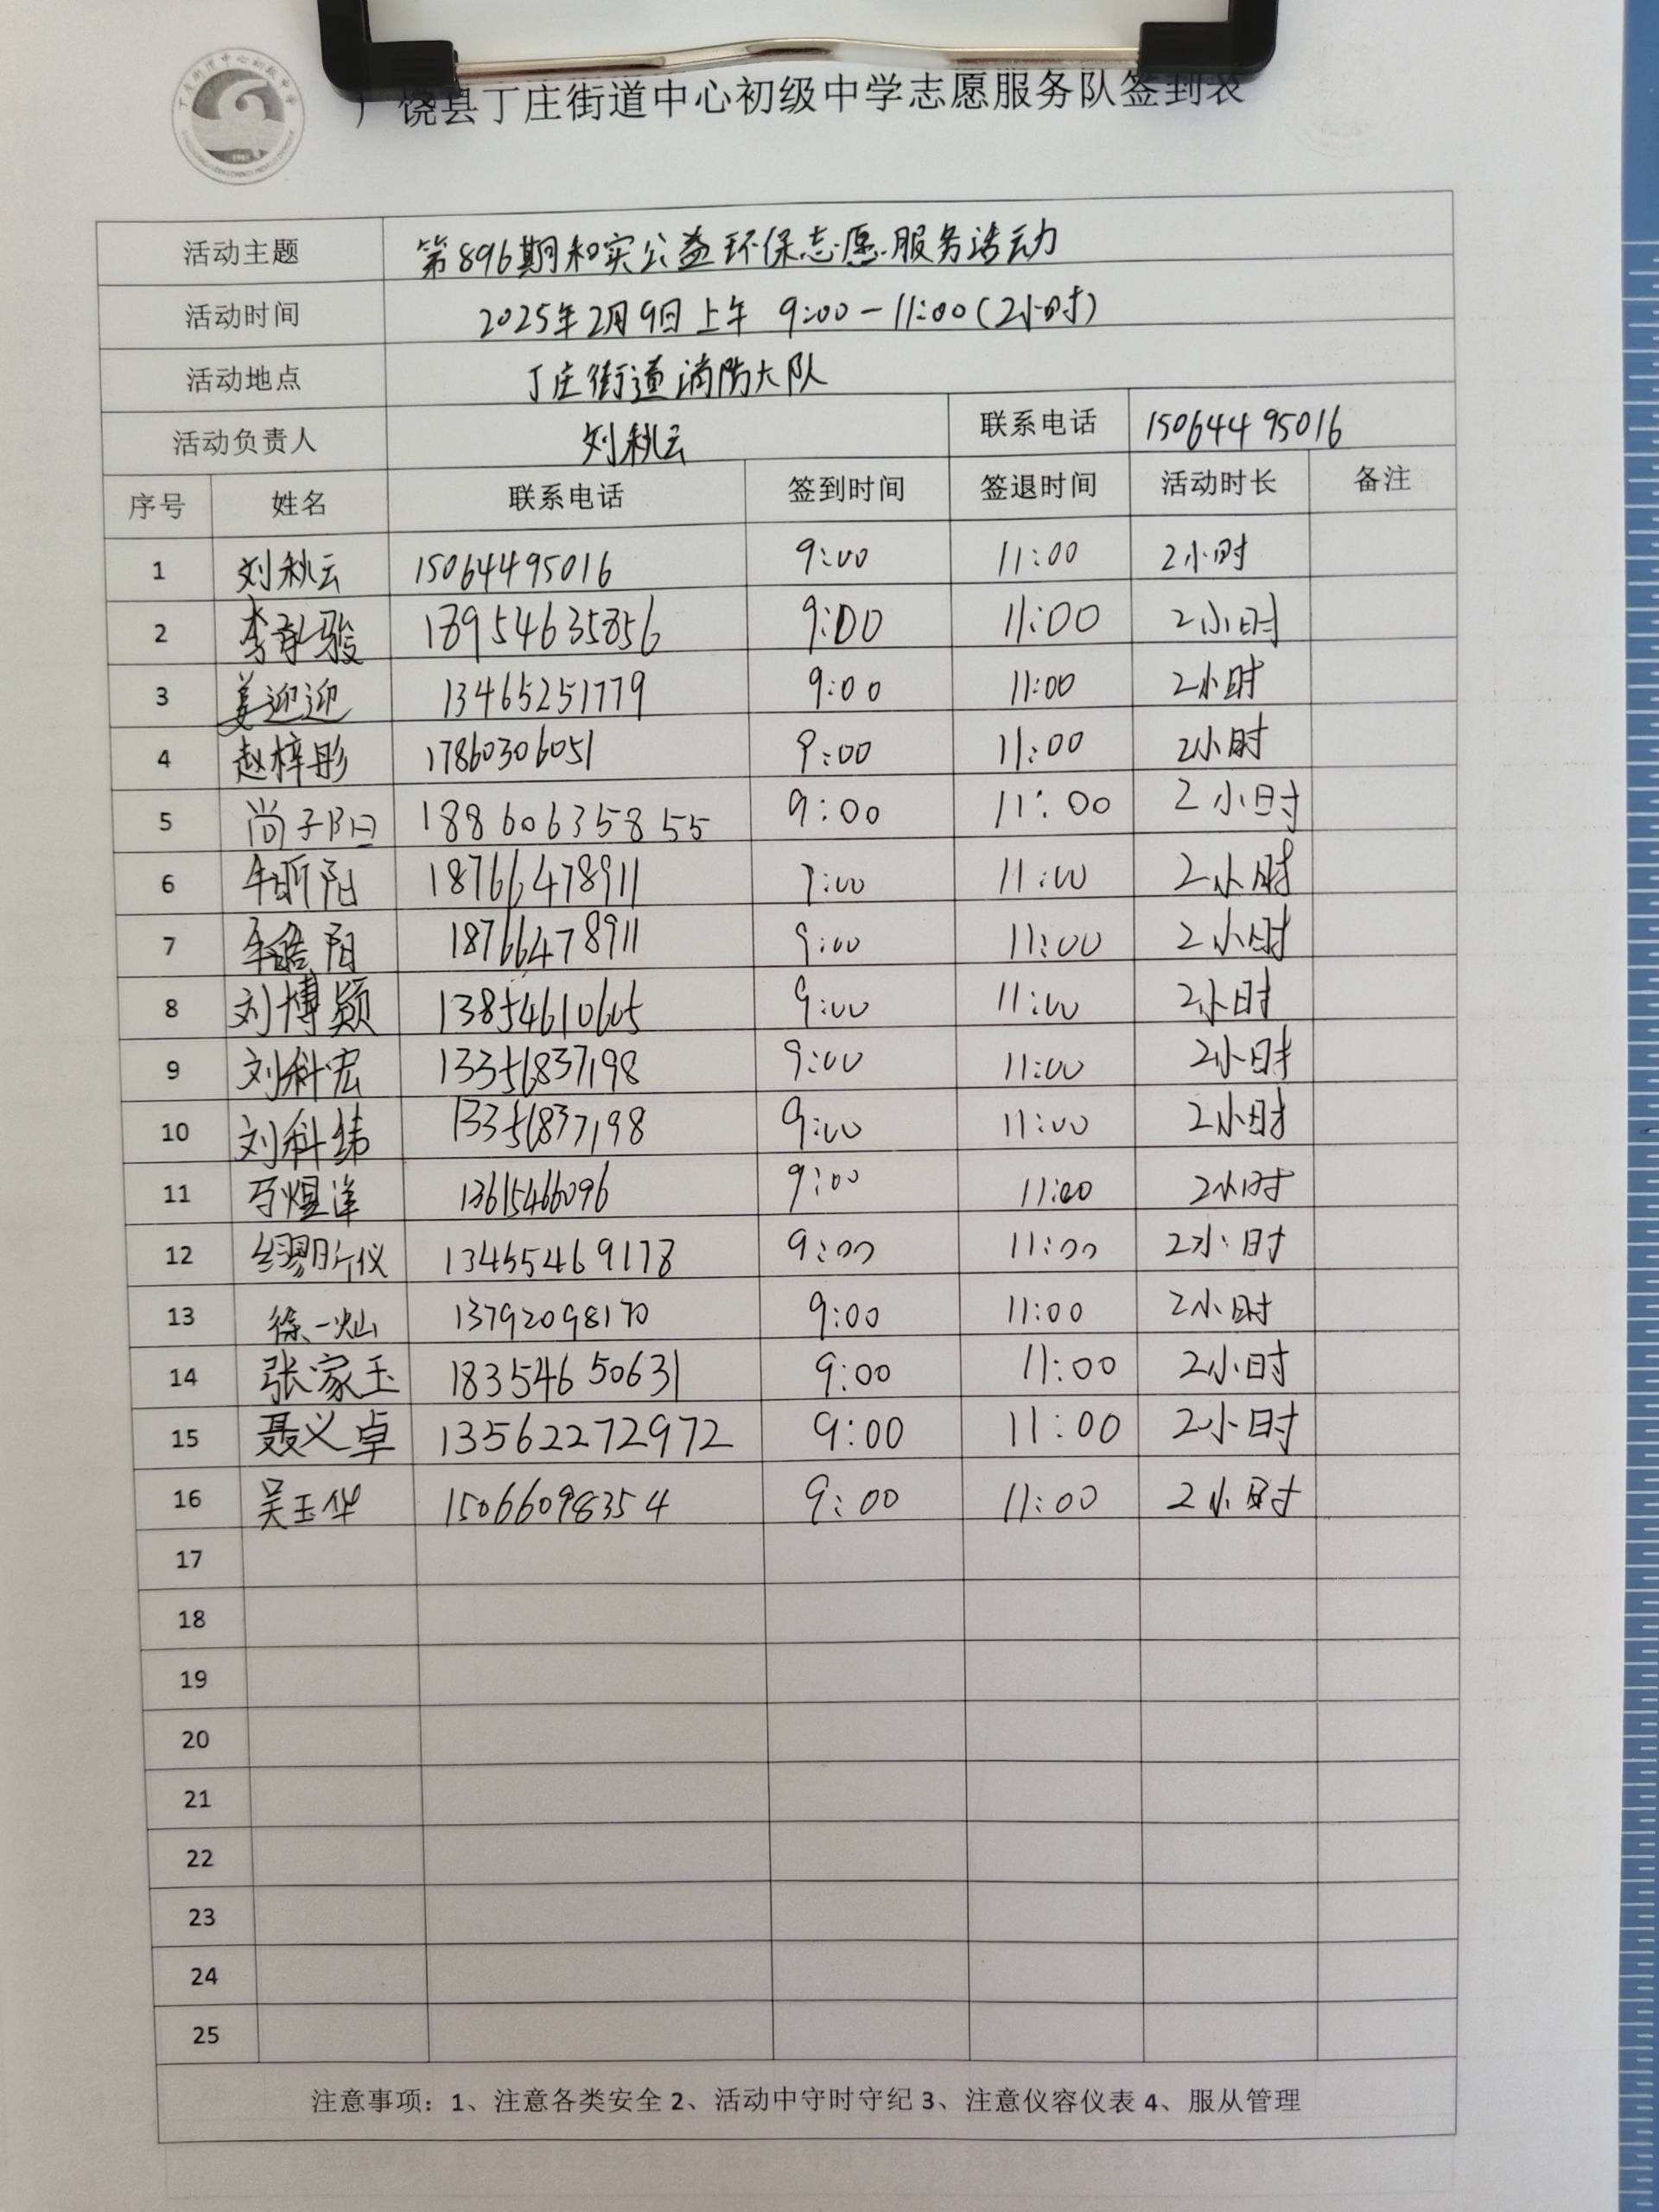 广饶县丁庄街道中心初级中学志愿服务队签到表
活动主题 第896期和实公益环保志愿服务活动
活动时间 2025年2月9日上午 9:00-11:00(2小时)
活动地点 丁庄街道消防大队
活动负责人 刘秋云 联系电话 15064495016
序号 姓名 联系电话 签到时间 签退时间 活动时长 备注
1 刘秋云 15064495016 9:00 11:00 2小时
2 18954635856 9:00 11:00 2小时
3 姜迎迎 13465251779 9:00 11:00 2小时
4 赵梓彤 17860306051 9:00 11:00 2小时
5 尚子阳 188606335855 9:00 11:00 2小时
6 牟昕阳 18766478911 9:00 11:00 2小时
7 牟皓阳 18766478911 9:00 11:00 2小时
8 刘博颖 13854610605 9:00 11:00 2小时
9 刘科宏 13356837198 9:00 11:00 2小时
10 刘科纬 13356837198 9:00 11:00 2小时
11 13615466096 9:00 11:00 2小时
12 缪昕仪 13455469178 9:00 11:00 2小时
13 徐一灿 13792098170 9:00 11:00 2小时
14 张家玉 18354650631 9:00 11:00 2小时
15 聂义卓 13562272972 9:00 11:00 2小时
16 吴玉华 15066098354 9:00 11:00 2小时
17
18
19
20
21
22
23
24
25
注意事项：1、注意各类安全 2、活动中守时守纪 3、注意仪容仪表 4、服从管理